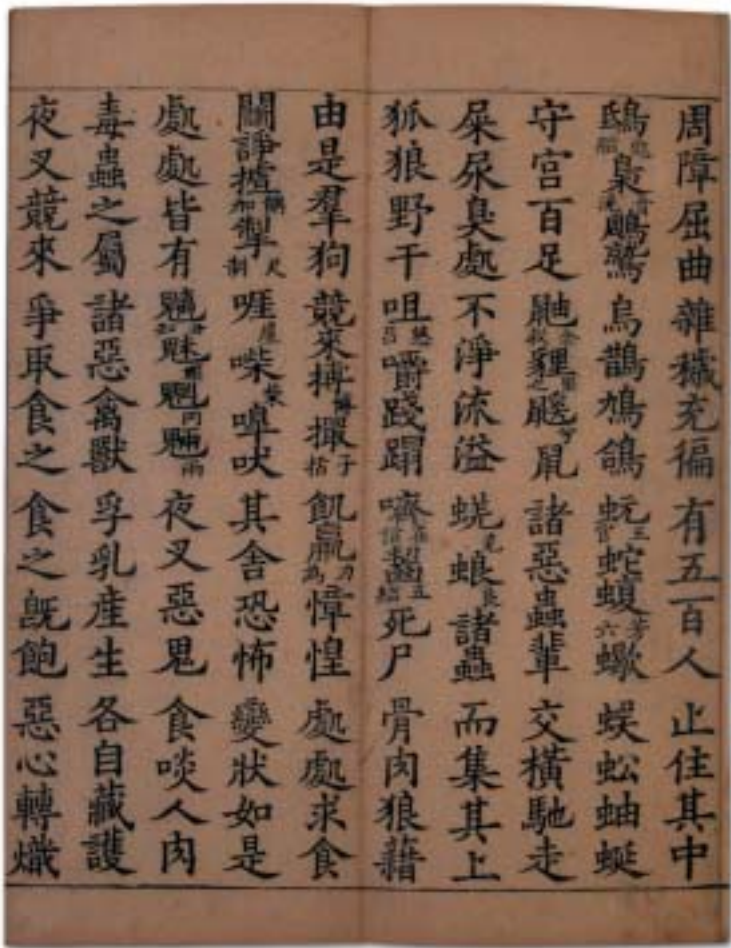 周障屈曲 雜穢充徧 有五百人 止住其中
鴟梟鵰鷲 烏鵲鳩鴿 蚖蛇蝮芳六蠍 蜈蚣蚰蜒
守宮百足 鼬貍鼷鼠 諸惡蟲輩 交橫馳走
屎尿臭處 不淨流溢 蜣蜋諸蟲 而集其上
狐狼野干 咀嚼踐蹋 嚌齧五結死尸 骨肉狼藉
由是羣狗 競來搏博撮子括 飢羸力為慞惶 處處求食
鬭諍摣掣尺制 啀崖喍柴嘷吠 其舍恐怖 變狀如是
處處皆有 魑魅魍魎兩 夜叉惡鬼 食啖人肉
毒蟲之屬 諸惡禽獸 孚乳產生 各自藏護
夜叉競來 爭取食之 食之旣飽 惡心轉熾